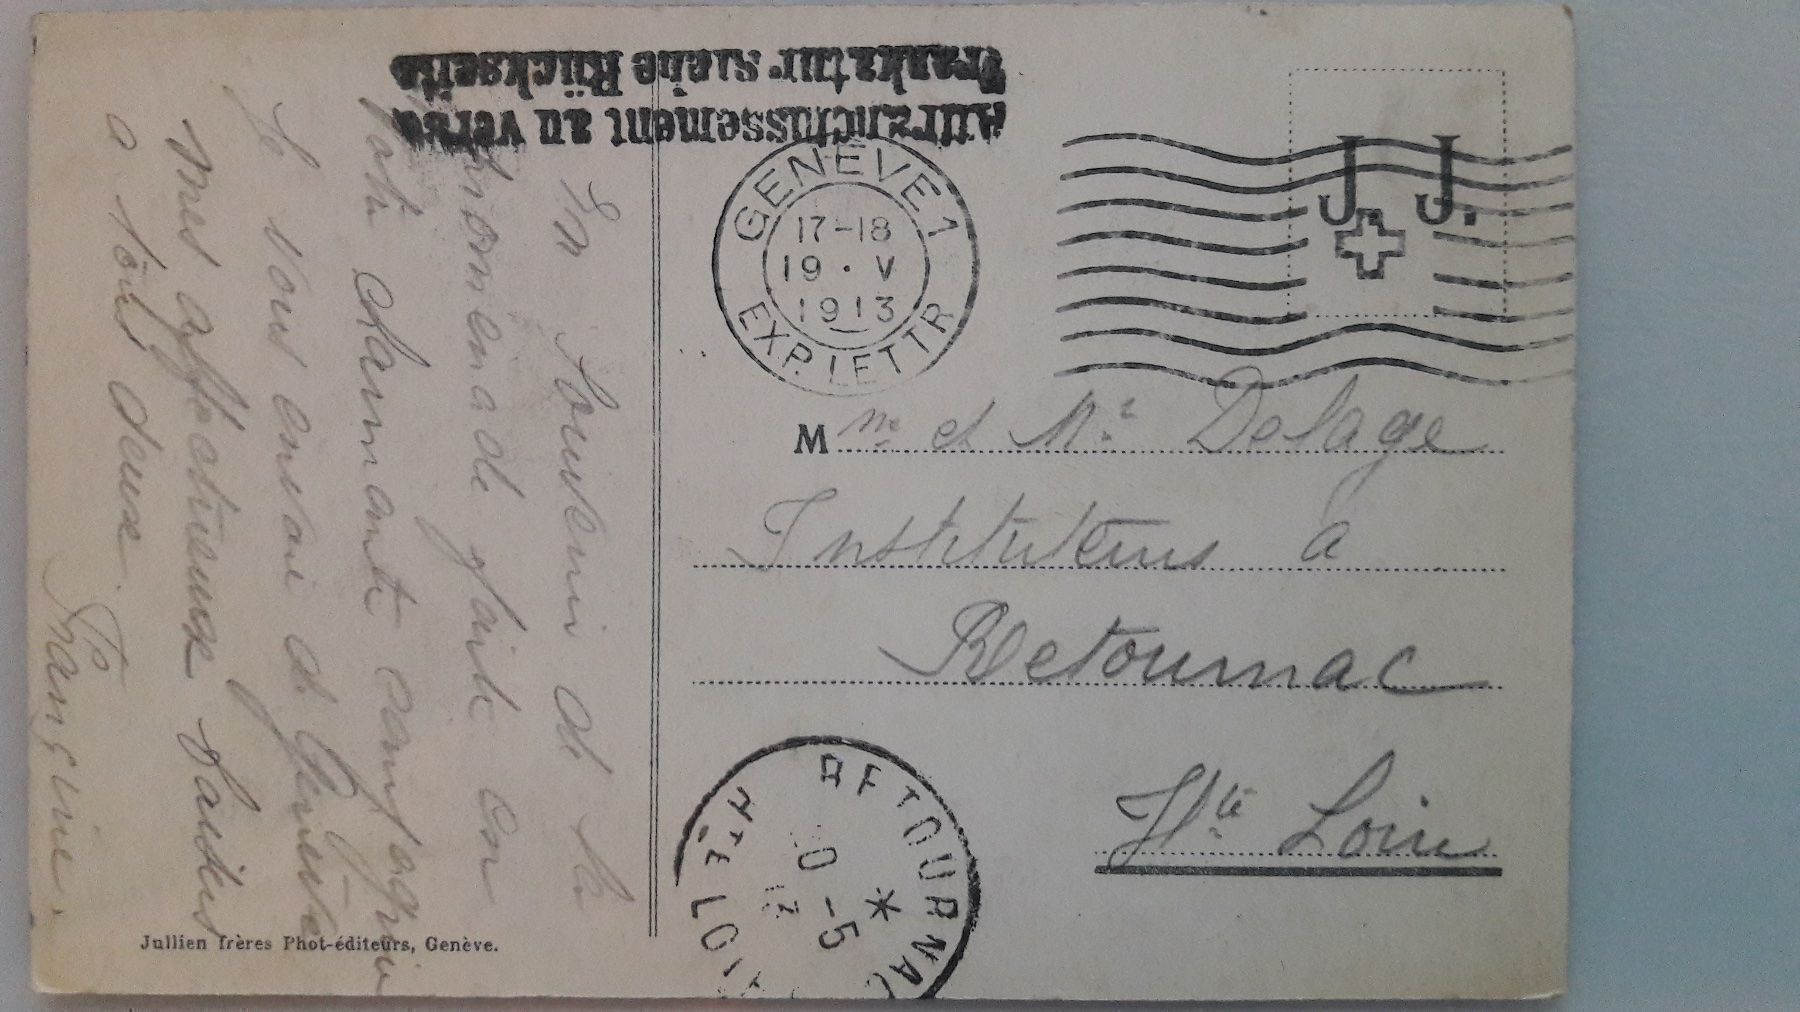 Affranchissement au verso
Frankatur siehe Rückseite
GENÈVE 1
17-18
19 · V
1913
EXP. LETTR
J. J.
Mme et Mr Delage
Instituteurs a
Retournac
Hte Loire
RETOURNAC
*
0 -5
13
Hte LOI
En souvenir de la
promenade faite en
votre charmante compagnie
Je vous envoie de Genève
mes affectueuses
a vous deux.
Françine.
Jullien frères Phot-éditeurs, Genève.